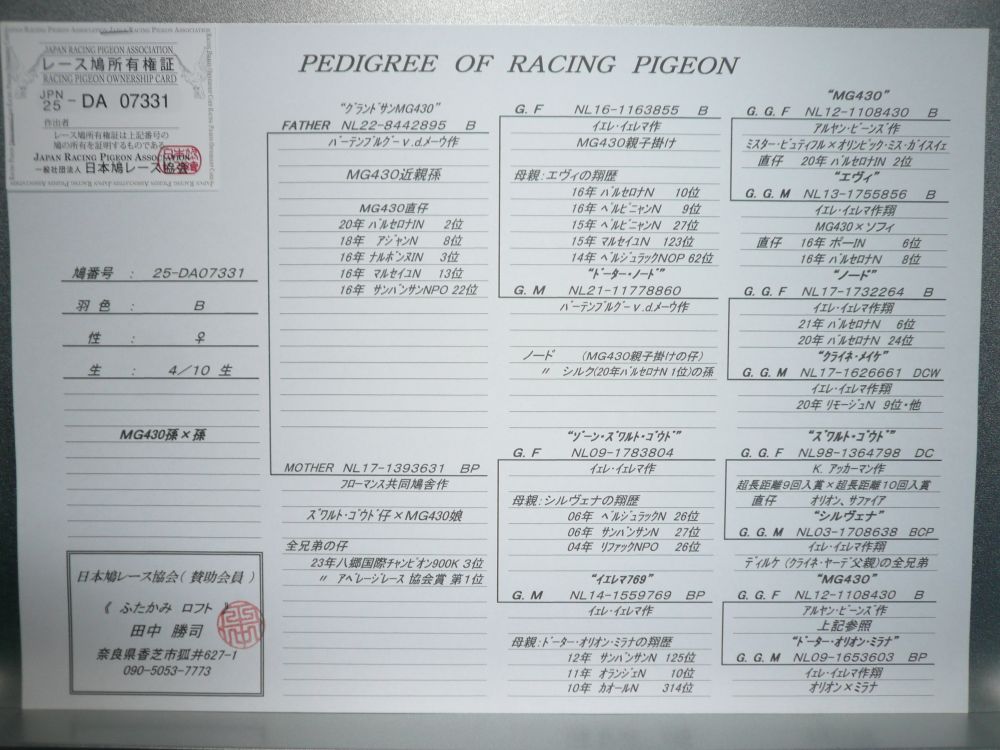 JAPAN RACING PIGEON ASSOCIATION
レース鳩所有権証
RACING PIGEON OWNERSHIP CARD
JPN
25 - DA 07331
作出者
レース鳩所有権証は上記番号の
鳩の所有を証明するものである
JAPAN RACING PIGEON ASSOCIATION
一般社団法人 日本鳩レース協会
PEDIGREE OF RACING PIGEON
鳩番号 : 25-DA07331
羽色 : B
性 : ♀
生 : 4/10 生
MG430孫×孫
日本鳩レース協会( 賛助会員 )
《 ふたかみ ロフト 》
田中 勝司
奈良県香芝市狐井627-1
090-5053-7773
“グランドサンMG430”
FATHER NL22-8442895 B
バーテンブルグーv.d.メーウ作
MG430近親孫
MG430直仔
20年 バルセロナIN 2位
18年 アジャンN 8位
16年 ナルボンヌIN 3位
16年 マルセイユN 13位
16年 サンバンサンNPO 22位
MOTHER NL17-1393631 BP
フローマンス共同鳩舎作
ズワルト・ゴウド仔×MG430娘
全兄弟の仔
23年八郷国際チャンピオン900K 3位
〃 アベレージレース 協会賞 第1位
G. F NL16-1163855 B
イエレ・イェレマ作
MG430親子掛け
母親:エヴィの翔歴
16年 バルセロナN 10位
16年 ペルピニャンN 9位
15年 ペルピニャンN 27位
15年 マルセイユN 123位
14年 ベルジュラックNOP 62位
“ドーター・ノード”
G. M NL21-11778860
バーテンブルグーv.d.メーウ作
ノード (MG430親子掛けの仔)
〃 シルク(20年バルセロナN 1位)の孫
“ゾーン・ズワルト・ゴウド”
G. F NL09-1783804
イエレ・イェレマ作
母親:シルヴェナの翔歴
06年 ベルジュラックN 26位
06年 サンバンサンN 27位
04年 リファックNPO 26位
“イエレマ769”
G. M NL14-1559769 BP
イエレ・イェレマ作
母親:ドーター・オリオン・ミラナの翔歴
12年 サンバンサンN 125位
11年 オランジェN 10位
10年 カオールN 314位
“MG430”
G. G. F NL12-1108430 B
アルヤン・ビーンズ作
ミスター・ビュティフル×オリンピック・ミス・ガイスイェ
直仔 20年 バルセロナIN 2位
“エヴィ”
G. G. M NL13-1755856 B
イエレ・イェレマ作翔
MG430×ソフィ
直仔 16年 ポーIN 6位
16年 バルセロナN 8位
“ノード”
G. G. F NL17-1732264 B
イエレ・イェレマ作翔
21年 バルセロナN 6位
20年 バルセロナN 24位
“クライネ・メイケ”
G. G. M NL17-1626661 DCW
イエレ・イェレマ作翔
20年 リモージュN 9位・他
“ズワルト・ゴウド”
G. G. F NL98-1364798 DC
K. アッカーマン作
超長距離9回入賞×超長距離10回入賞
直仔 オリオン、サファイア
“シルヴェナ”
G. G. M NL03-1708638 BCP
イエレ・イェレマ作翔
ディルケ(クライネ・ヤーデ父親)の全兄弟
“MG430”
G. G. F NL12-1108430 B
アルヤン・ビーンズ作
上記参照
“ドーター・オリオン・ミラナ”
G. G. M NL09-1653603 BP
イエレ・イェレマ作翔
オリオン×ミラナ